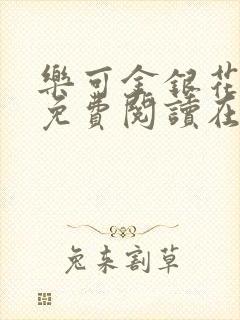 樂可金銀花
免費閱讀在
兔来割草